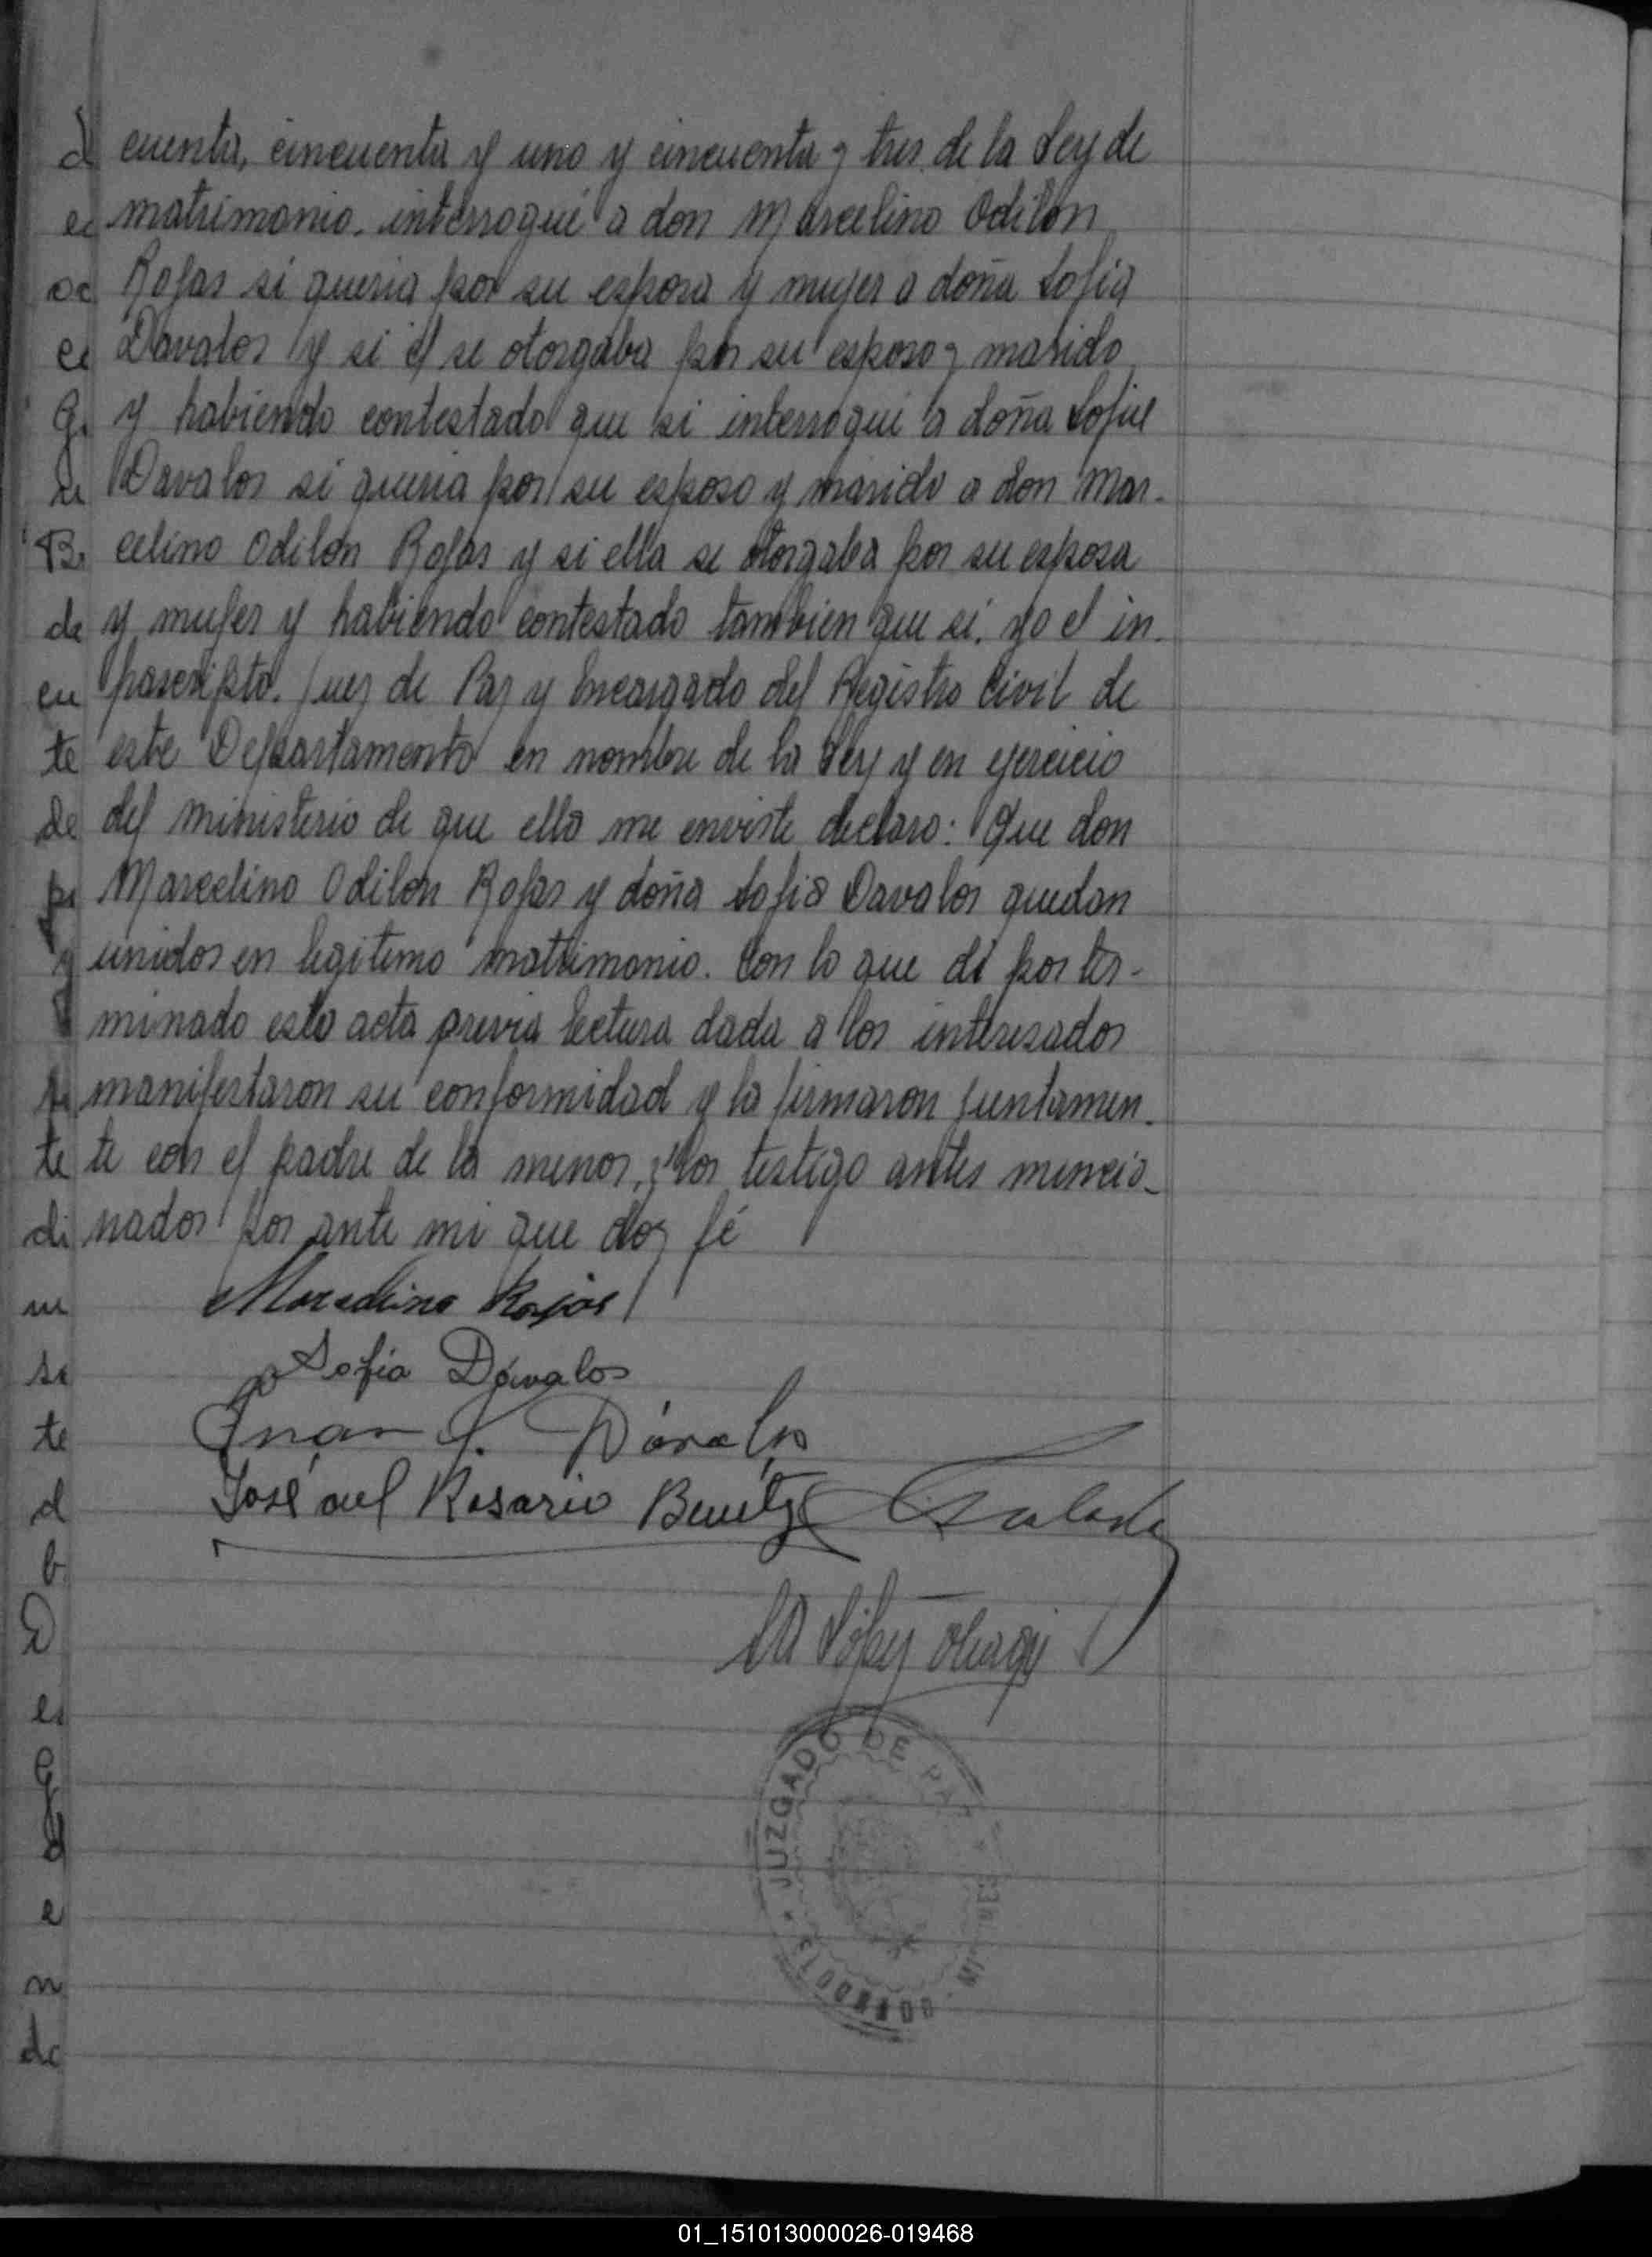 cuenta, cincuenta y uno y cincuenta y tres de la Ley de
matrimonio, interrogué a don Marcelino Odilón
Rojas si queria por su esposa y mujer a doña Sofia
Davalos y si él se otorgaba por su esposo y marido
y habiendo contestado que si interrogué a doña Sofia
Davalos si queria por su esposo y marido a don Mar-
celino Odilón Rojas y si ella se otorgaba por su esposa
y mujer y habiendo contestado tambien que si, yo el in-
frascripto, Juez de Paz y Encargado del Registro Civil de
este Departamento en nombre de la Ley y en ejercicio
del ministerio de que ella me enviste declaro: Que don
Marcelino Odilon Rojas y doña Sofia Davalos quedan
unidos en legitimo matrimonio. Con lo que dí por ter-
minado esta acta previa lectura dada a los interesados
manifestaron su conformidad y la firmaron juntamen-
te con el padre de la menor, y los testigo antes mencio-
nados por ante mi que doy fé
Marcelino Rojas
Sofia Dávalos
Juan Dávalos
José del Rosario Benítez
López
JUZGADO DE PAZ
01_151013000026-019468